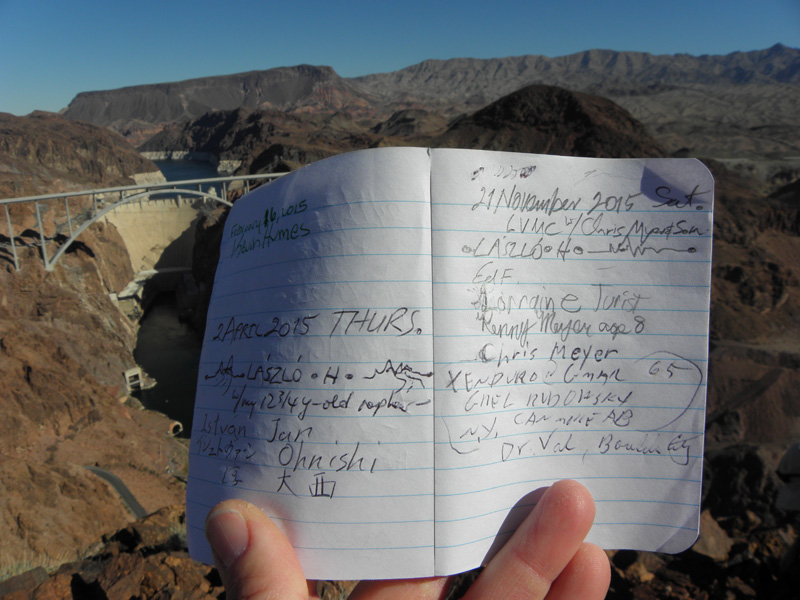 February 16, 2015
Kevin Hymes
2 APRIL 2015 THURS.
LÁSZLÓ • H •
w/my 12 3/4 y-old nephew
Istvan Jan
Ohnishi
大西
21 November 2015 Sat.
LVMC w/ Chris Myer & Son
• LÁSZLÓ • H •
Ed F.
Lorraine Turist
Kenny Meyer age 8
Chris Meyer
XENDUROR@GMAIL 65
GHEL RUDOVSKY
NY, CANMORE AB
Dr. Val, Boulder City